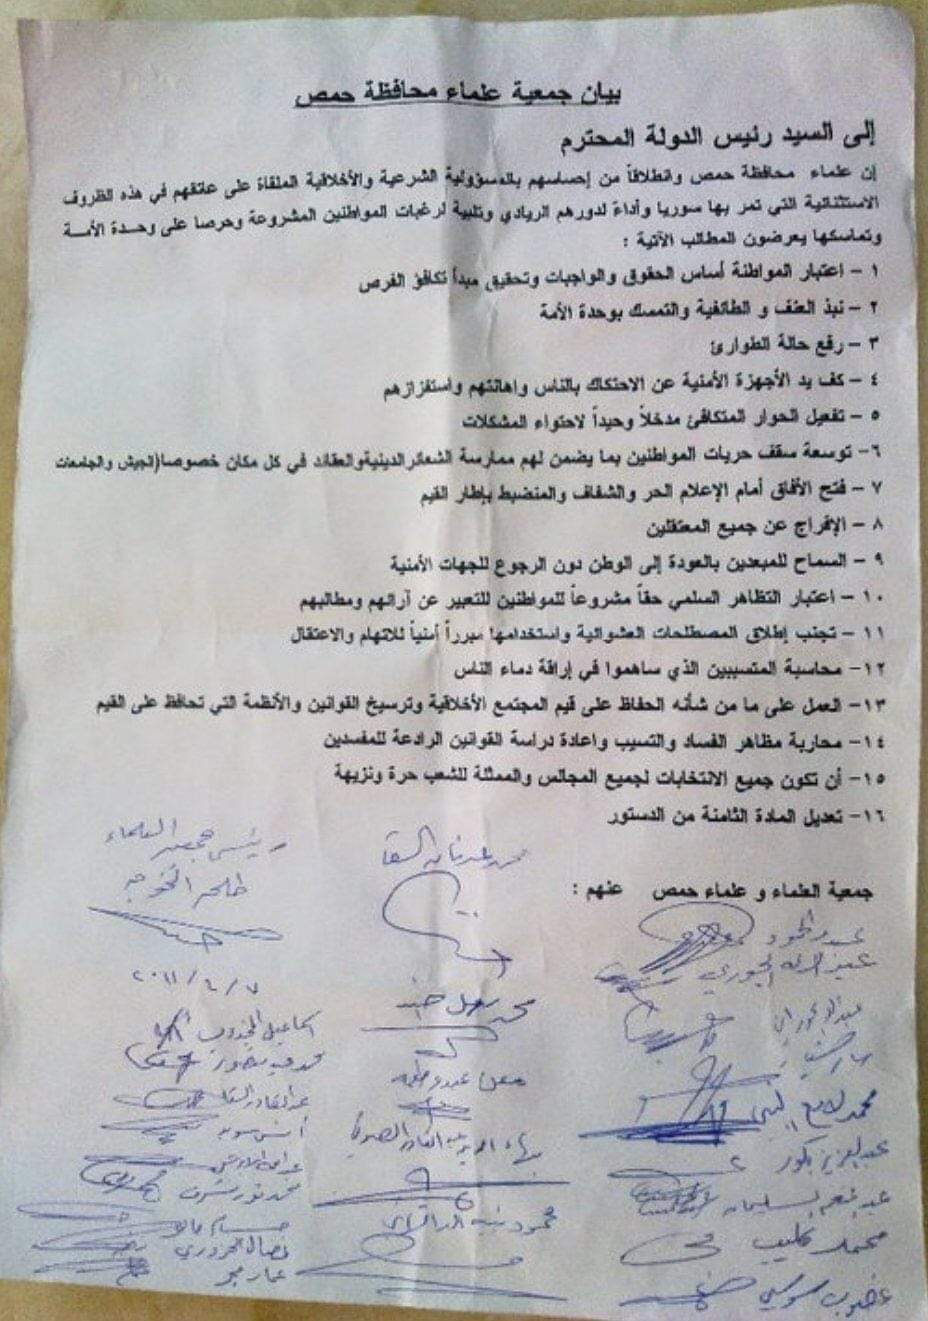 بيان جمعية علماء محافظة حمص
إلى السيد رئيس الدولة المحترم
إن علماء محافظة حمص وانطلاقاً من إحساسهم بالمسؤولية الشرعية والأخلاقية الملقاة على عاتقهم في هذه الظروف
الاستثنائية التي تمر بها سوريا وأداءً لدورهم الريادي وتلبية لرغبات المواطنين المشروعة وحرصا على وحدة الأمة
وتماسكها يعرضون المطالب الآتية :
١ – اعتبار المواطنة أساس الحقوق والواجبات وتحقيق مبدأ تكافؤ الفرص
٢ – نبذ العنف و الطائفية والتمسك بوحدة الأمة
٣ – رفع حالة الطوارئ
٤ – كف يد الأجهزة الأمنية عن الاحتكاك بالناس واهانتهم واستفزازهم
٥ – تفعيل الحوار المتكافئ مدخلاً وحيداً لاحتواء المشكلات
٦- توسعة سقف حريات المواطنين بما يضمن لهم ممارسة الشعائر الدينية والعقائد في كل مكان خصوصا(الجيش والجامعات
٧ – فتح الأفاق أمام الإعلام الحر والشفاف والمنضبط بإطار القيم
٨ – الإفراج عن جميع المعتقلين
٩ – السماح للمبعدين بالعودة إلى الوطن دون الرجوع للجهات الأمنية
١٠ – اعتبار التظاهر السلمي حقاً مشروعاً للمواطنين للتعبير عن آرائهم ومطالبهم
١١ – تجنب إطلاق المصطلحات العشوائية واستخدامها مبرراً أمنياً للاتهام والاعتقال
١٢- محاسبة المتسببين الذي ساهموا في إراقة دماء الناس
١٣- العمل على ما من شأنه الحفاظ على قيم المجتمع الأخلاقية وترسيخ القوانين والأنظمة التي تحافظ على القيم
١٤- محاربة مظاهر الفساد والتسيب واعادة دراسة القوانين الرادعة للمفسدين
١٥- أن تكون جميع الانتخابات لجميع المجالس والممثلة للشعب حرة ونزيهة
١٦- تعديل المادة الثامنة من الدستور
جمعية العلماء و علماء حمص عنهم :
محمد عدنان السقا
رئيس جمعية العلماء
طلحة الخوجه
٢٠١١/٤/٧
اسماعيل المجذوب
عبد القادر السقا
أنس سويد
عبد العزيز بكور
محمد كليب
عمار مجر